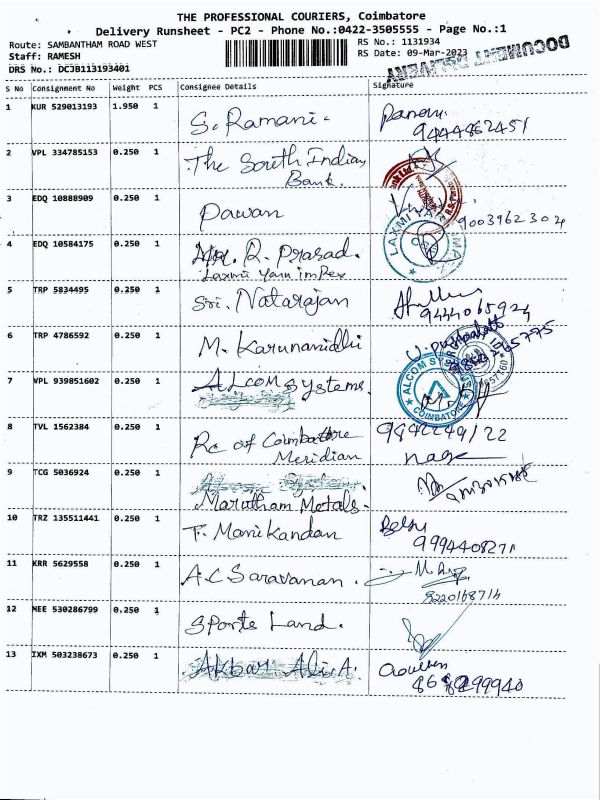 THE PROFESSIONAL COURIERS, Coimbatore
Delivery Runsheet - PC2 - Phone No.:0422-3505555 - Page No.:1
Route: SAMBANTHAM ROAD WEST
RS No.: 1131934
Staff: RAMESH
RS Date: 09-Mar-2023
DOCUMENT DELIVERY
DRS No.: DCJB113193401
S No Consignment No Weight PCS Consignee Details Signature
1 KUR 529013193 1.950 1 S. Ramani.
9444862451
2 VPL 334785153 0.250 1 The South Indian
Bank.
3 EDQ 10888909 0.250 1 Pawan
9003962302
4 EDQ 10584175 0.250 1 Mr. R. Prasad.
Laxmi Yarn impex
LAXMI YA
5 TRP 5834495 0.250 1 Sri. Natarajan
9444065924
6 TRP 4786592 0.250 1 M. Karunanidhi
7 VPL 939851602 0.250 1 ALCOM Systems.
ALCOM SYSTEMS
COIMBATORE
8 TVL 1562384 0.250 1 Rc of Coimbatore
Meridian
9842249122
9 TCG 5036924 0.250 1
Marutham Metals.
10 TRZ 135511441 0.250 1 T. Manikandan
9994408271
11 KRR 5629558 0.250 1 A.C Saravanan.
8220168714
12 NEE 530286799 0.250 1 Sports Land.
13 IXM 503238673 0.250 1 Akbar Ali.A.